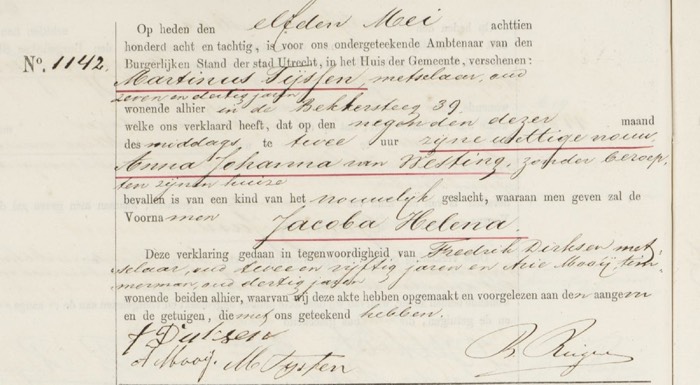 Op heden den elfden Mei achttien
honderd acht en tachtig, is voor ons ondergeteekende Ambtenaar van den
Burgerlijken Stand der stad Utrecht, in het Huis der Gemeente, verschenen:
No. 1142.
Martinus Tijssen, metselaar, oud
zeven en dertig jaren
wonende alhier in de Bekkersteeg 39
welke ons verklaard heeft, dat op den negenden dezer maand
des middags, te twee uur zijne wettige vrouw
Anna Johanna van Westing, zonder beroep,
ten zijnen huize
bevallen is van een kind van het vrouwelijk geslacht, waaraan men geven zal de
Voornamen
Jacoba Helena.
Deze verklaring gedaan in tegenwoordigheid van Fredrik Dirksen met
selaar, oud twee en vijftig jaren en Arie Mooij tim
merman, oud dertig jaren
wonende beiden alhier, waarvan wij deze akte hebben opgemaakt en voorgelezen aan den aangever
en de getuigen, die met ons geteekend hebben.
f Dirksen
A Mooij M Tijssen